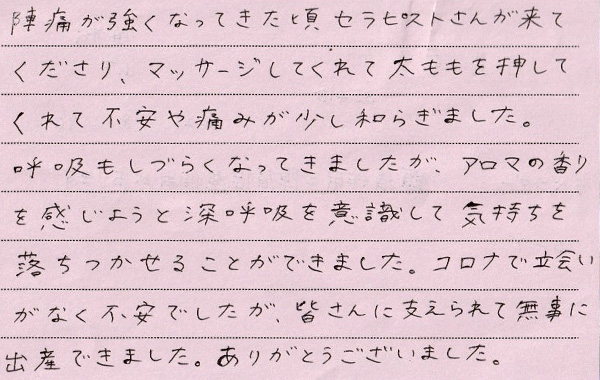 陣痛が強くなってきた頃 セラピストさんが来て
くださり、マッサージしてくれて太ももを押して
くれて不安や痛みが少し和らぎました。
呼吸もしづらくなってきましたが、アロマの香り
を感じようと深呼吸を意識して気持ちを
落ちつかせることができました。コロナで立会い
がなく不安でしたが、皆さんに支えられて無事に
出産できました。ありがとうございました。